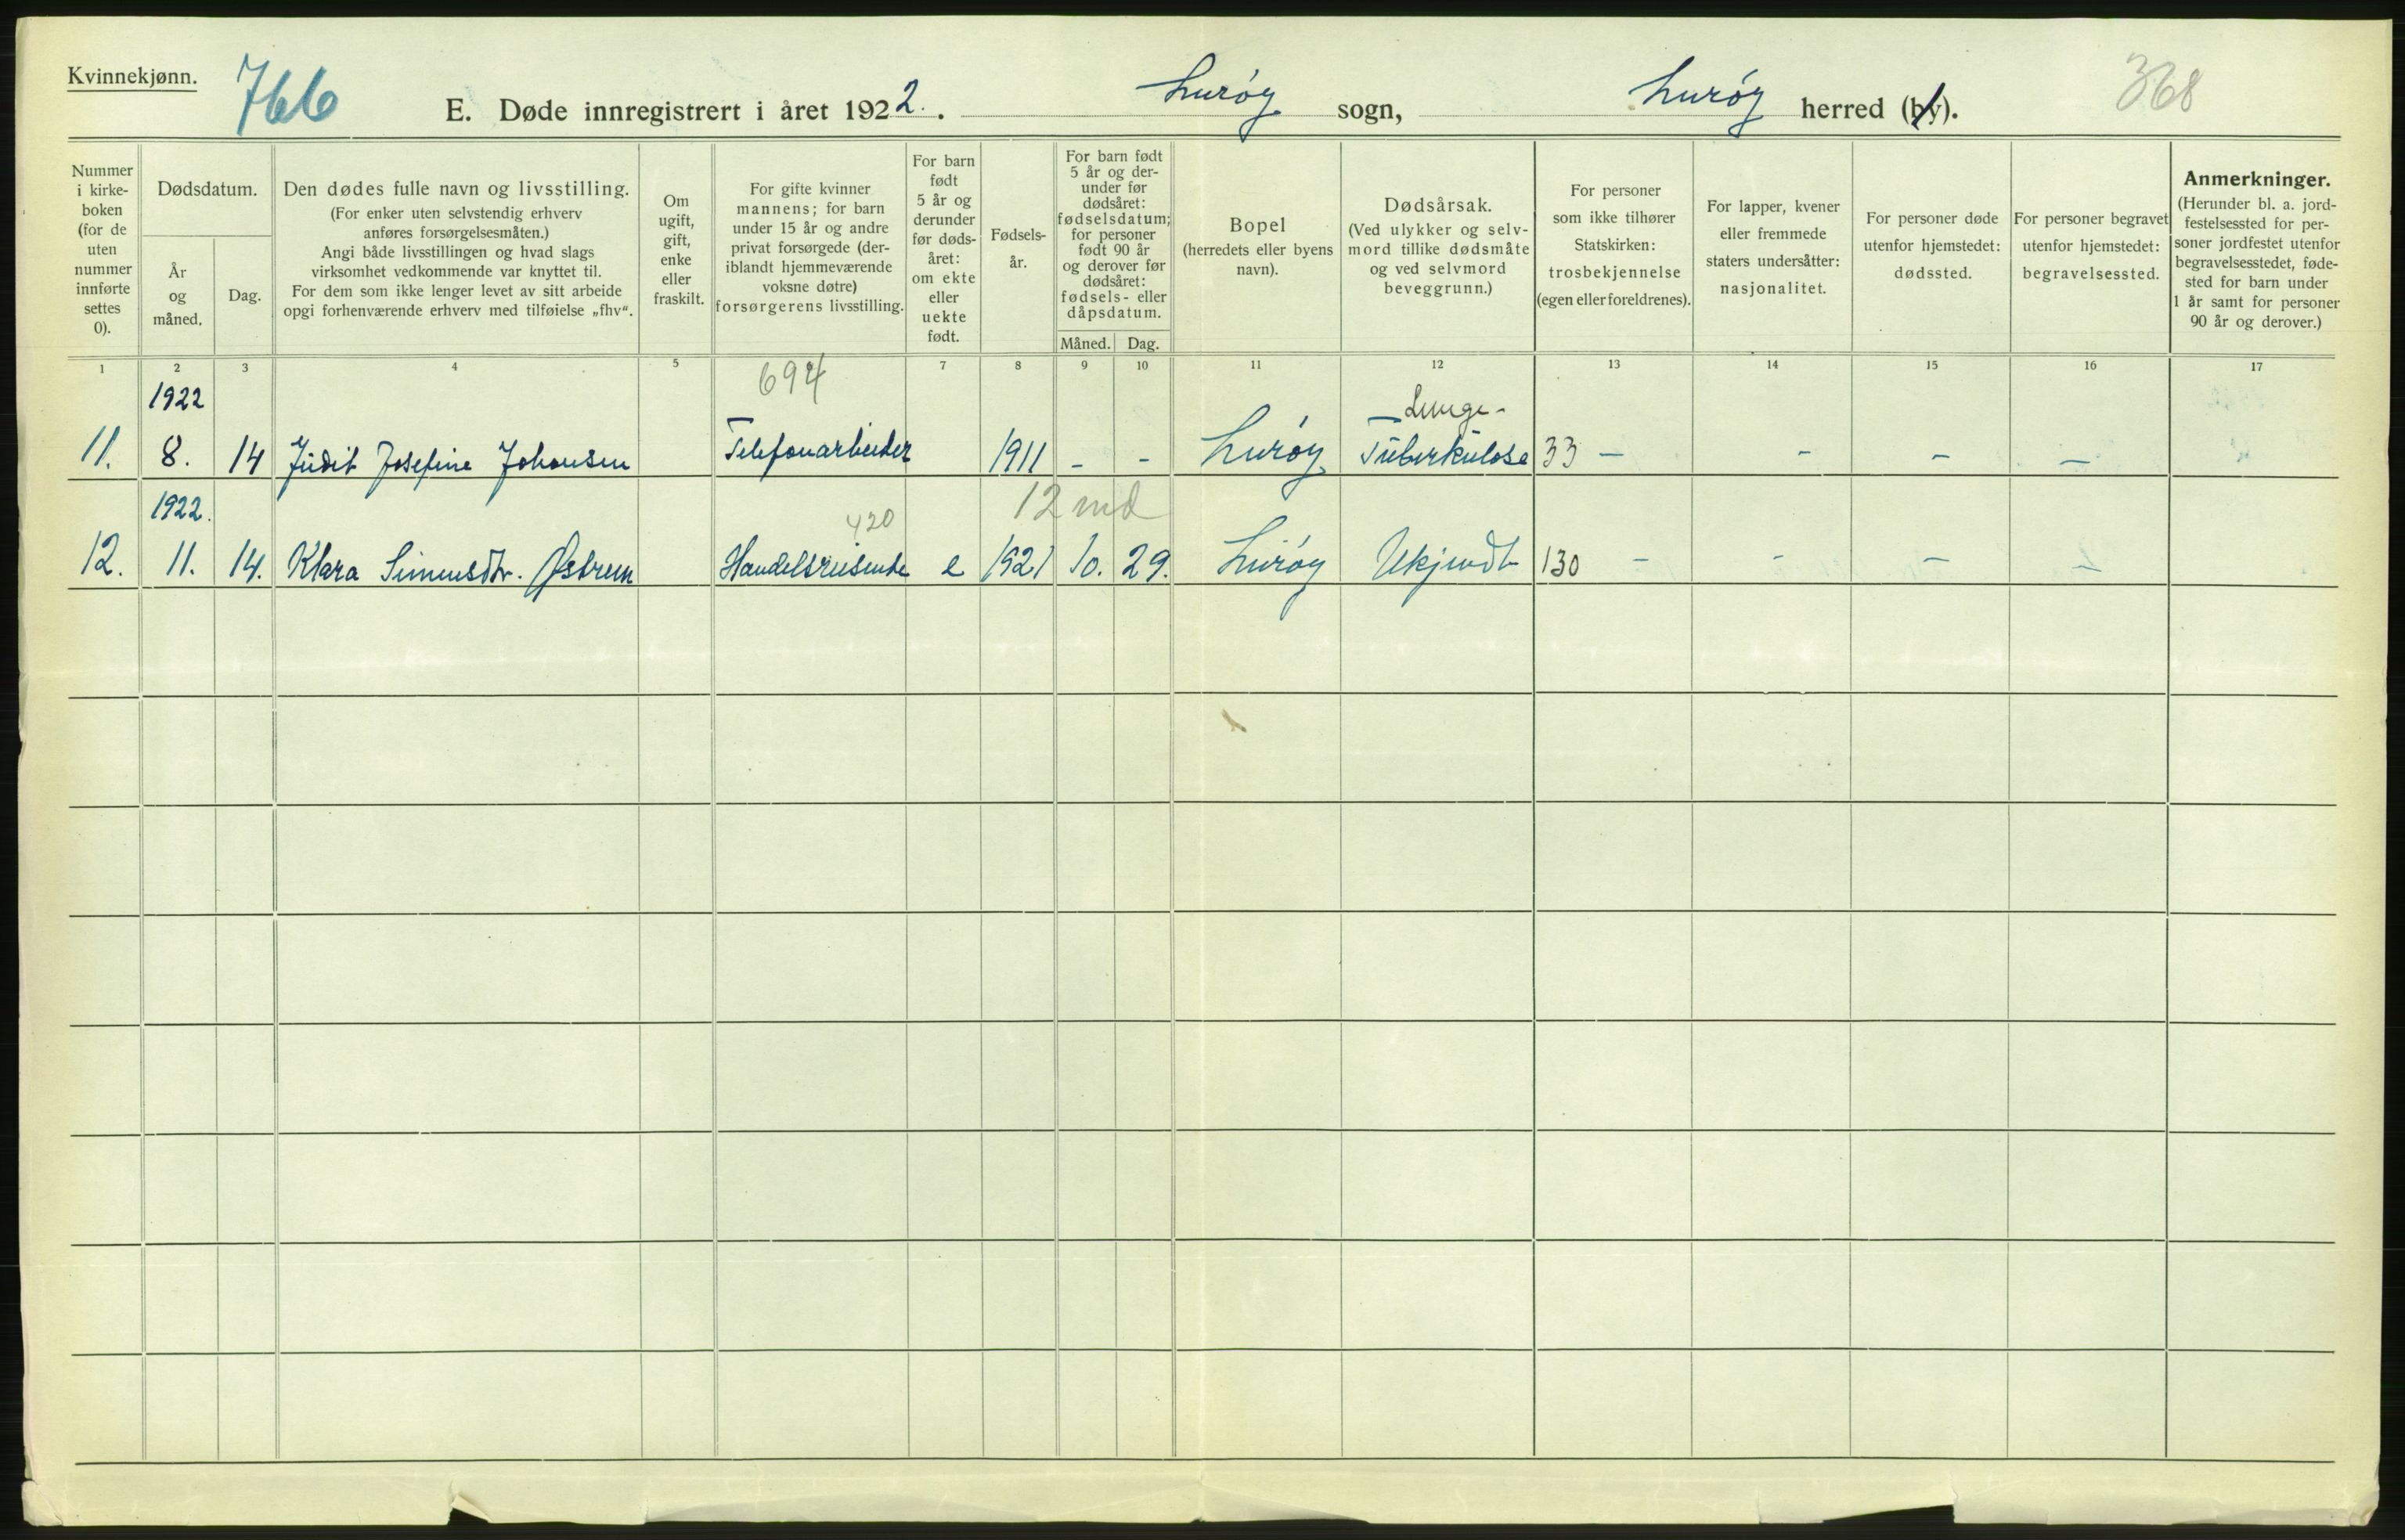 Kvinnekjønn.
766
E. Døde innregistrert i året 1922. Lurøy sogn, Lurøy herred (by).
368
Nummer
i kirke-
boken
(for de
uten
nummer
innførte
settes
0).
Dødsdatum.
År
og
måned.
Dag.
Den dødes fulle navn og livsstilling.
(For enker uten selvstendig erhverv
anføres forsørgelsesmåten.)
Angi både livsstillingen og hvad slags
virksomhet vedkommende var knyttet til.
For dem som ikke lenger levet av sitt arbeide
opgi forhenværende erhverv med tilføielse „fhv“.
Om
ugift,
gift,
enke
eller
fraskilt.
For gifte kvinner
mannens; for barn
under 15 år og andre
privat forsørgede (der-
iblandt hjemmeværende
voksne døtre)
forsørgerens livsstilling.
For barn
født
5 år og
derunder
før døds-
året:
om ekte
eller
uekte
født.
Fødsels-
år.
For barn født
5 år og der-
under før
dødsåret:
fødselsdatum;
for personer
født 90 år
og derover før
dødsåret:
fødsels- eller
dåpsdatum.
Måned. Dag.
Bopel
(herredets eller byens
navn).
Dødsårsak.
(Ved ulykker og selv-
mord tillike dødsmåte
og ved selvmord
beveggrunn.)
For personer
som ikke tilhører
Statskirken:
trosbekjennelse
(egen eller foreldrenes).
For lapper, kvener
eller fremmede
staters undersåtter:
nasjonalitet.
For personer døde
utenfor hjemstedet:
dødssted.
For personer begravet
utenfor hjemstedet:
begravelsessted.
Anmerkninger.
(Herunder bl. a. jord-
festelsessted for per-
soner jordfestet utenfor
begravelsesstedet, føde-
sted for barn under
1 år samt for personer
90 år og derover.)
1 2 3 4 5 7 8 9 10 11 12 13 14 15 16 17
694
1922
Lunge-
11. 8. 14 Judit Josefine Johansen Telefonarbeider 1911 - - Lurøy Tuberkulose 33 - - - -
1922. 12 md
420
12. 11. 14. Klara Simensdtr. Østrem Handelsreisende e 1921 10. 29. Lurøy Ukjendt 130 - - - -